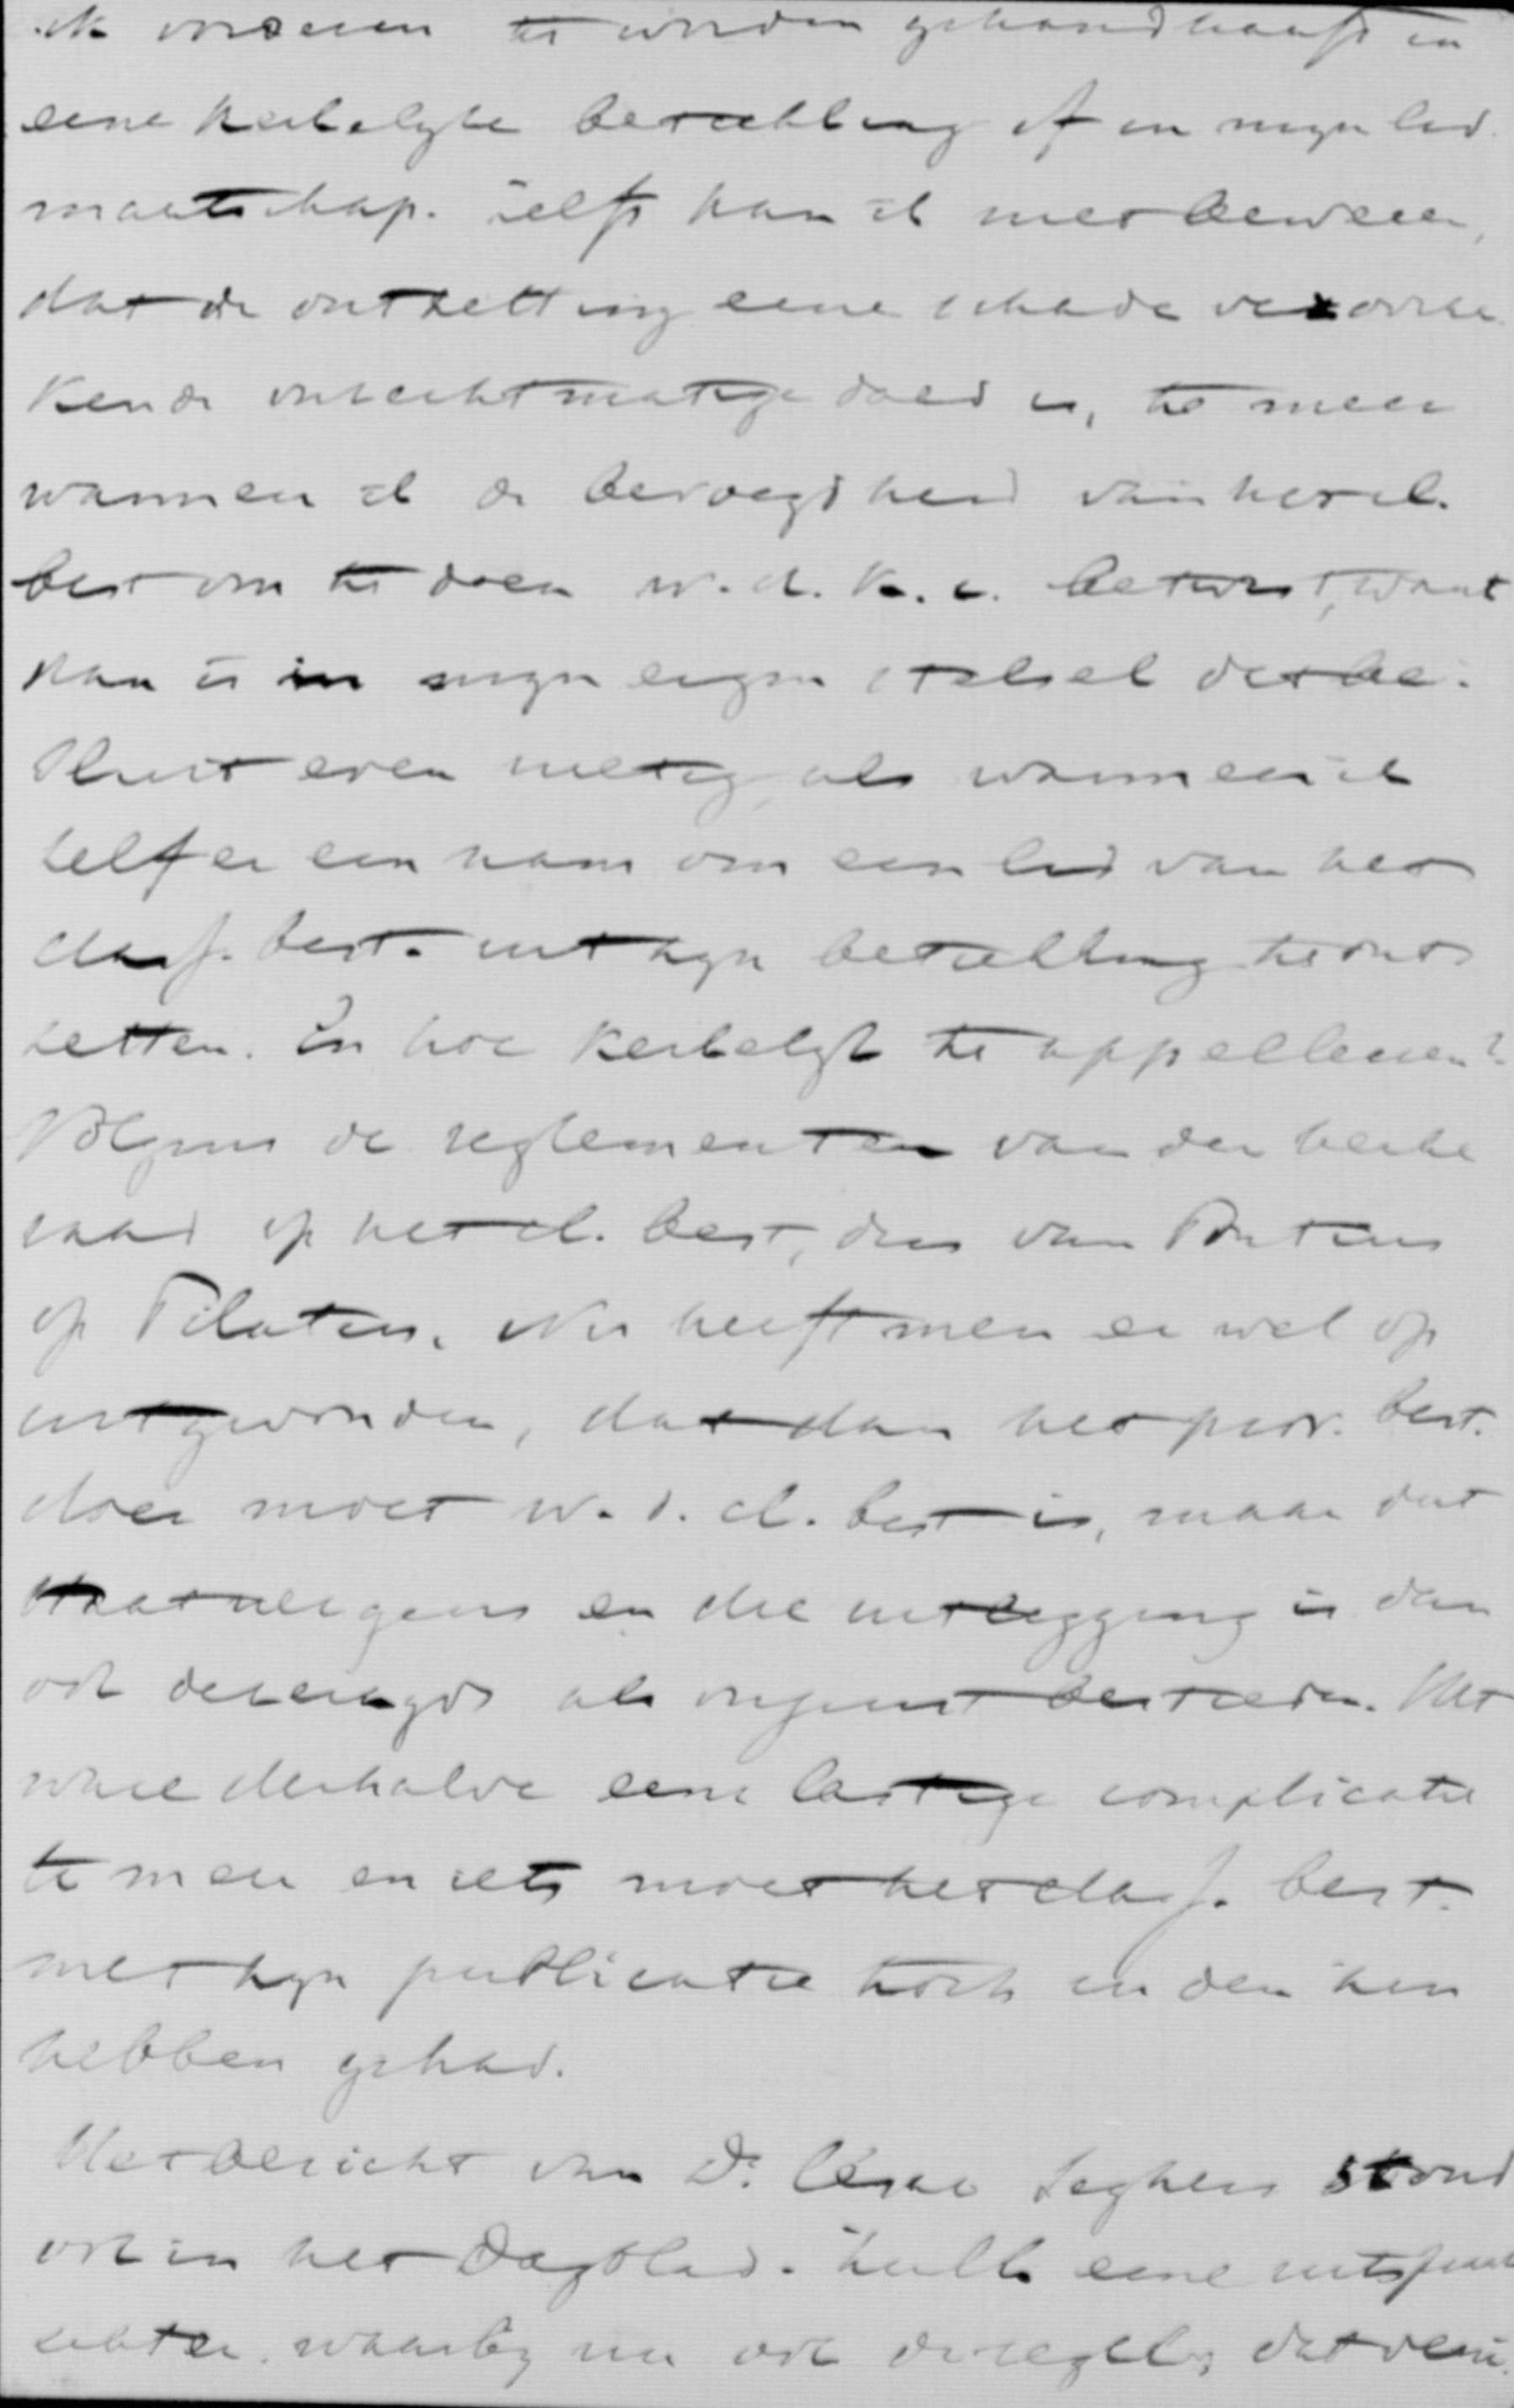 ik vorderen te worden gehandhaafd in
eene kerkelijke betrekking of in mijn lid-
maatschap. Zelfs kan ik niet beweren,
dat de ontzetting eene schade veroorza-
kende onrechtmatige daad is, te meer
wanneer ik de bevoegdheid van het cl.
best om te doen w.d.k.r. betwist, want
dan is in mijn eigen stelsel dat be-
sluit even nietig, als wanneer ik
zelf er een nam om een lid van het
class. best. uit zijn betrekking te ont-
zetten. En hoe kerkelijk te appelleeren?
Volgens de reglementen van den kerke
raad op het cl. best, dus van Pontius
op Pilatus. Nu heeft men er wel op
uitgevonden, dat dan het prov. best.
doen moet w.d. cl. best is, maar dat
staat nergens en die uitlegging is dan
ook dezerzijds als onjuist bestreden. Het
ware derhalve eene lastige complicatie
te meer en iets moet het class. best.
met zijn publicatie toch in den zin
hebben gehad.
Het bericht van Dr. César Seghers stond
ook in het Dagblad. Zulk eene uitspraak
echter, waarbij nu ook de regel, dat